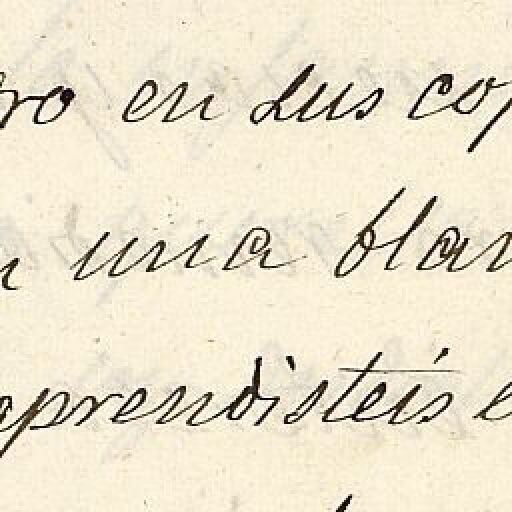 ro en sus cop
una blan
aprendisteis e